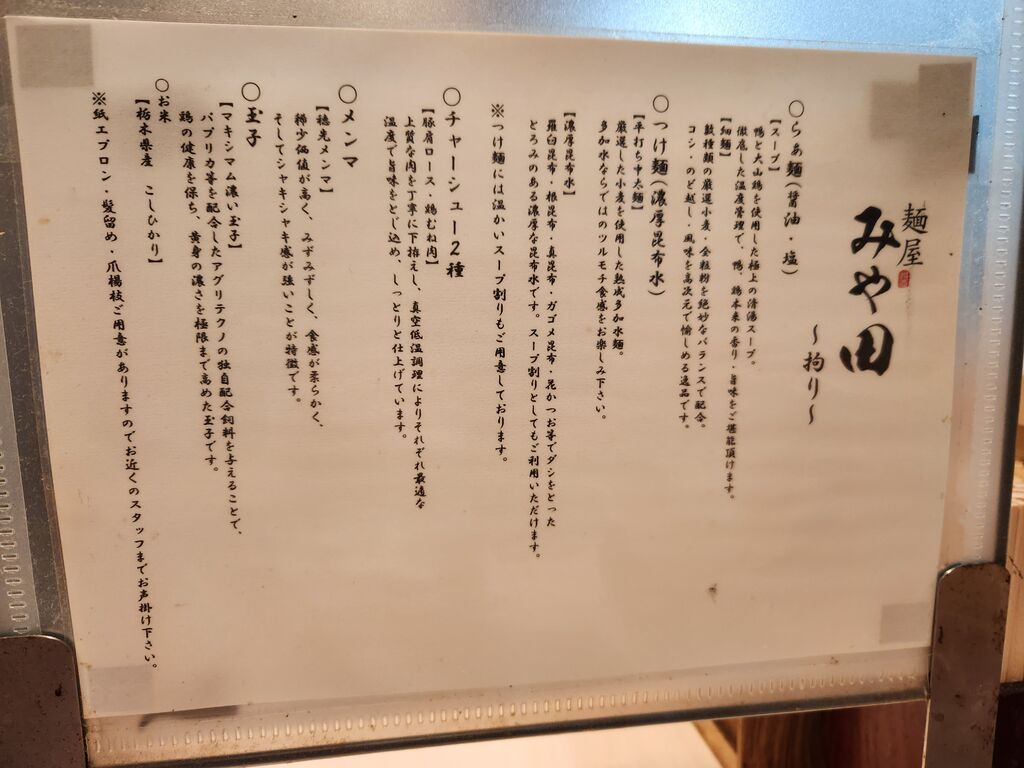 麺屋
みや田
～拘り～
〇らぁ麺(醤油・塩)
【スープ】
鴨と大山鶏を使用した極上の清湯スープ。
徹底した温度管理で、鴨、鶏本来の香り・旨味をご堪能頂けます。
【細麺】
数種類の厳選小麦・全粒粉を絶妙なバランスで配合。
コシ・のど越し・風味を高次元で愉しめる逸品です。
〇つけ麺(濃厚昆布水)
【平打ち中太麺】
厳選した小麦を使用した熟成多加水麺。
多加水ならではのツルモチ食感をお楽しみ下さい。
【濃厚昆布水】
羅臼昆布・根昆布・真昆布・ガゴメ昆布・花かつお等でダシをとった
とろみのある濃厚な昆布水です。スープ割りとしてもご利用いただけます。
※つけ麺には温かいスープ割りもご用意しております。
〇チャーシュー2種
【豚肩ロース・鶏むね肉】
上質な肉を丁寧に下拵えし、真空低温調理によりそれぞれ最適な
温度で旨味をとじ込め、しっとりと仕上げています。
〇メンマ
【穂先メンマ】
稀少価値が高く、みずみずしく、食感が柔らかく、
そしてシャキシャキ感が強いことが特徴です。
〇玉子
【マキシマム濃い玉子】
パプリカ等を配合したアグリテクノの独自配合飼料を与えることで、
鶏の健康を保ち、黄身の濃さを極限まで高めた玉子です。
〇お米
【栃木県産 こしひかり】
※紙エプロン・髪留め・爪楊枝ご用意がありますのでお近くのスタッフまでお声掛け下さい。